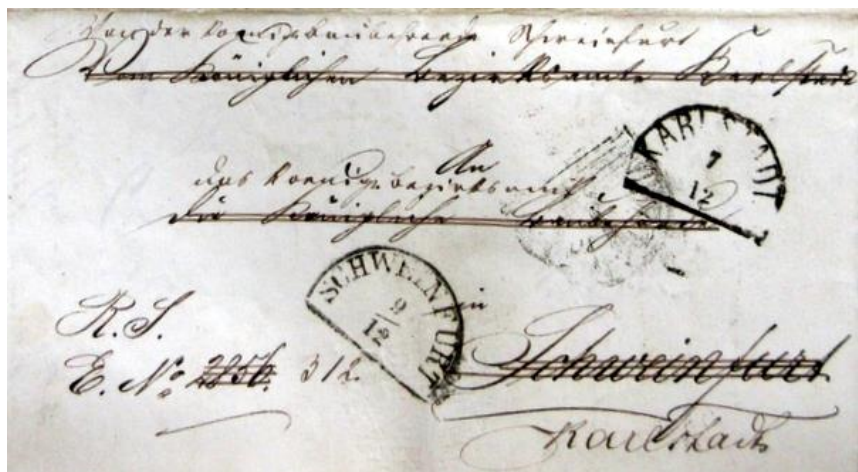 Von der Koenigl. Baubehoerde Schweinfurt
Vom Königlichen Bezirksamte Karlstadt
An
das Koenigl. Bezirksamt
die Königliche Baubehörde
KARLSTADT
7
12
SCHWEINFURT
9
12
in
R. S.
E. No. 2856. 312.
Schweinfurt
Karlstadt